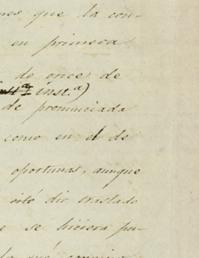 nes que la con-
en primera
de once de
inst.ª)
de pronunciada
como en el de
oportunas, aunque
dio traslado
e se hiciera pu-